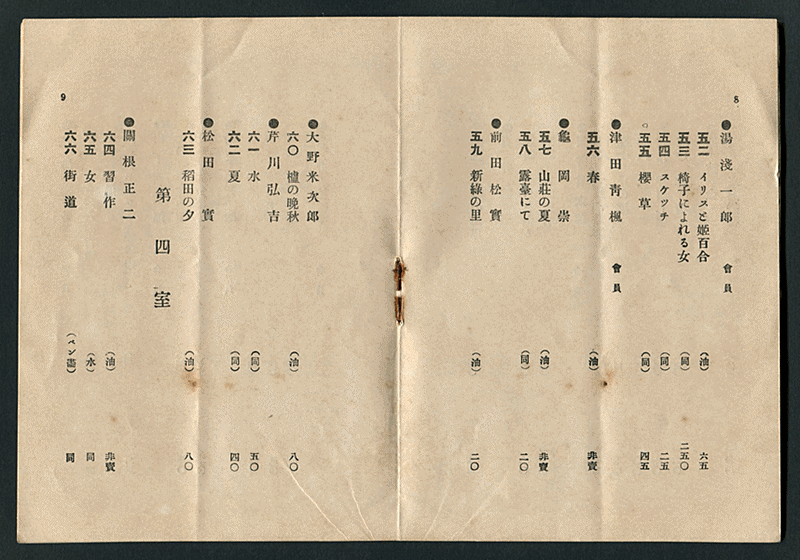 8
●湯淺一郎 會員
五二 イリスと姬百合 (油) 六五
五三 椅子によれる女 (同) 二五〇
五四 スケツチ (同) 二五
五五 櫻草 (同) 四五
●津田靑楓 會員
五六 春 (油) 非賣
●龜岡崇
五七 山莊の夏 (油) 非賣
五八 露臺にて (同) 二〇
●前田松實
五九 新綠の里 (油) 二〇
●大野米次郎
六〇 櫨の晚秋 (油) 八〇
●芹川弘吉
六一 水 (同) 五〇
六二 夏 (同) 四〇
●松田實
六三 稻田の夕 (油) 八〇
第四室
●關根正二
六四 習作 (油) 非賣
六五 女 (水) 同
六六 街道 (ペン畵) 同
9